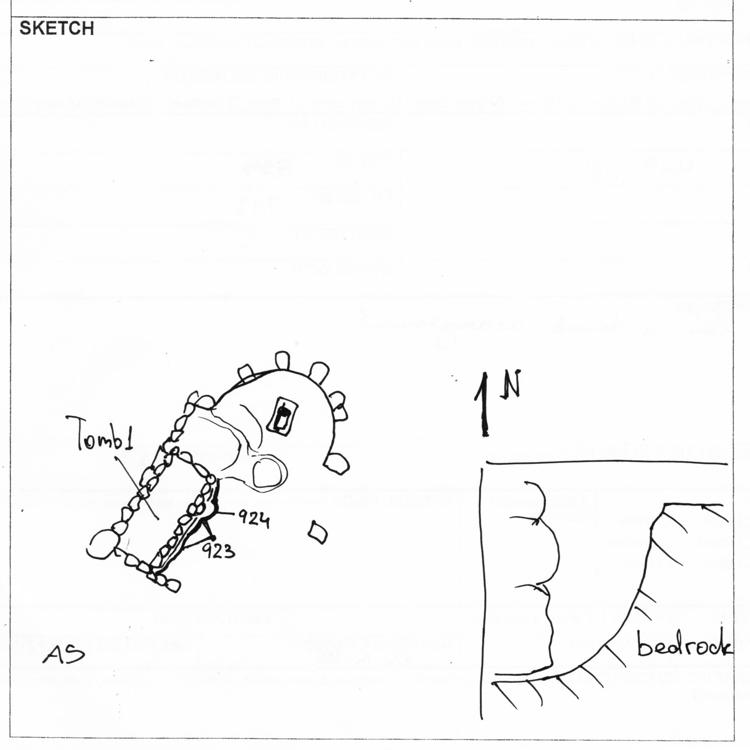 SKETCH
N
Tomb1
924
923
bedrock
AS